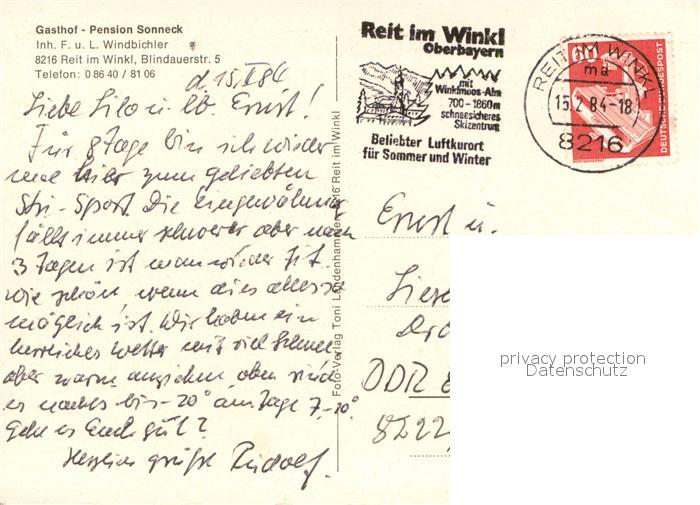 Gasthof - Pension Sonneck
Inh. F. u. L. Windbichler
8216 Reit im Winkl, Blindauerstr. 5
Telefon: 0 86 40 / 81 06
d. 15.II 84
Liebe Lilo u. lb. Ernst!
Für 8 Tage bin ich wieder
hier zum geliebten
Ski-Sport. Die eingewöhnung
fällt immer schwerer aber nach
3 Tagen ist man wieder fit.
wie schön, wenn dies alles
möglich ist. Wir haben ein
herrliches Wetter mit viel Schnee
aber warm anziehen, oben sind
es nachts bis -20° am Tage 7-10°
Geht es Euch gut?
Herzliche grüße Rudolf.
Foto-Verlag Toni 8216 Reit im Winkl
Reit im Winkl
Oberbayern
mit
Winklmoos-Alm
700-1860m
schneesicheres
Skizentrum
Beliebter Luftkurort
für Sommer und Winter
REIT IM WINKL
ma
15.2.84-18
8216
60
DEUTSCHE BUNDESPOST
Ernst u.
DDR 8
8222
privacy protection
Datenschutz